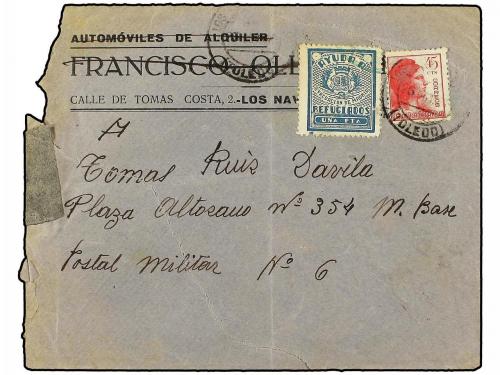 AUTOMÓVILES DE ALQUILER
FRANCISCO OL
CALLE DE TOMAS COSTA, 2.-LOS NAV
(TOLEDO)
AYUDA
REFUGIADOS
UNA PTA
45
(TOLEDO)
A
Tomas Ruis Davila
Plaza Altozano Nº 354 M. Base
Postal Militar Nº 6